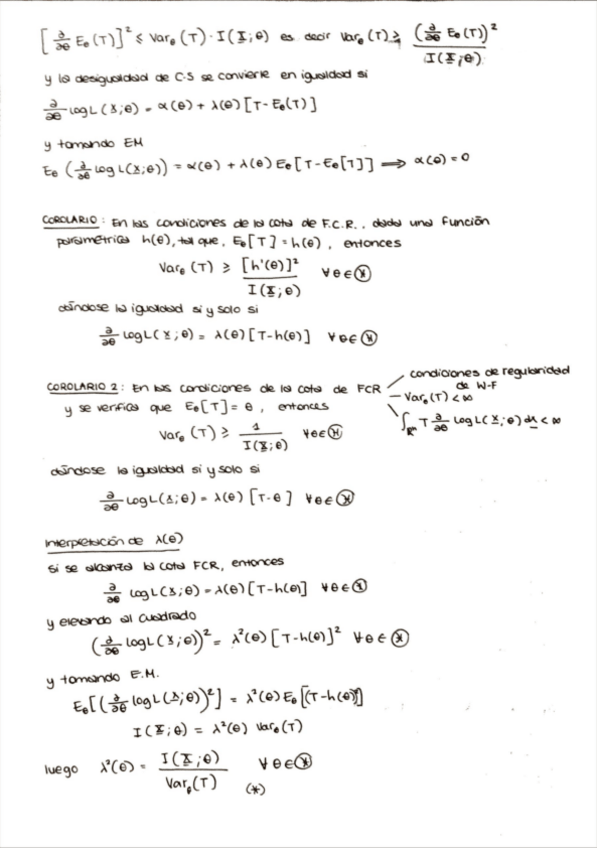 [∂/∂θ E_θ(T)]² ≤ Var_θ(T) · I(X;θ) es decir Var_θ(T) ≥ (∂/∂θ E_θ(T))² / I(X;θ)
y la desigualdad de C-S se convierte en igualdad si
∂/∂θ log L(X;θ) = α(θ) + λ(θ) [T - E_θ(T)]
y tomando EM
E_θ (∂/∂θ log L(X;θ)) = α(θ) + λ(θ) E_θ [T - E_θ[T]] ⟹ α(θ) = 0
COROLARIO: En las condiciones de la cota de F.C.R., dada una función
paramétrica h(θ), tal que, E_θ[T] = h(θ), entonces
Var_θ(T) ≥ [h'(θ)]² / I(X;θ) ∀θ∈Ⓗ
dándose la igualdad si y solo si
∂/∂θ log L(X;θ) = λ(θ) [T - h(θ)] ∀θ∈Ⓗ
COROLARIO 2: En las condiciones de la cota de FCR
condiciones de regularidad
de W-F
Var_θ(T) < ∞
∫_ℝⁿ T ∂/∂θ log L(x;θ) dx < ∞
y se verifica que E_θ[T] = θ, entonces
Var_θ(T) ≥ 1 / I(X;θ) ∀θ∈Ⓗ
dándose la igualdad si y solo si
∂/∂θ log L(X;θ) = λ(θ) [T - θ] ∀θ∈Ⓗ
Interpretación de λ(θ)
Si se alcanza la cota FCR, entonces
∂/∂θ log L(X;θ) = λ(θ) [T - h(θ)] ∀θ∈Ⓗ
y elevando al cuadrado
(∂/∂θ log L(X;θ))² = λ²(θ) [T - h(θ)]² ∀θ∈Ⓗ
y tomando E.M.
E_θ[(∂/∂θ log L(X;θ))²] = λ²(θ) E_θ [(T - h(θ))²]
I(X;θ) = λ²(θ) Var_θ(T)
luego λ²(θ) = I(X;θ) / Var_θ(T) ∀θ∈Ⓗ
(*)